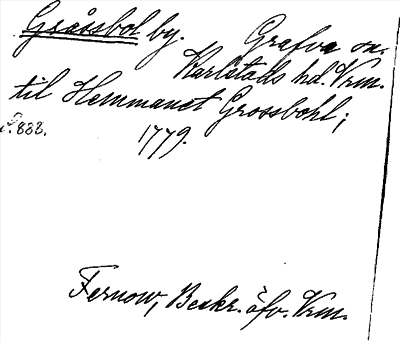 Gråssbol by. Grafva sn.
Karlstads hd. Vrm.
til Hemmanet Grossbohl;
s. 888. 1779.
Fernow, Beskr. öfv. Vrm.